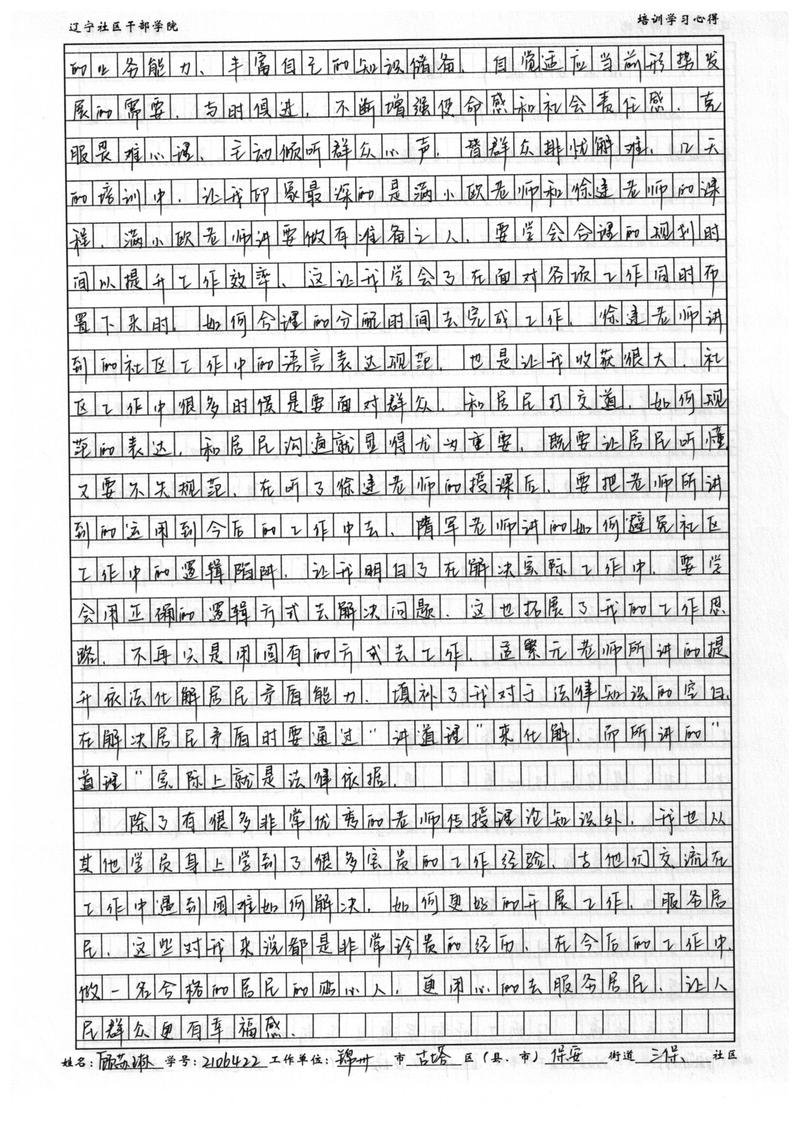 辽宁社区干部学院 培训学习心得
的业务能力、丰富自己的知识储备、自觉适应当前形势发
展的需要,与时俱进,不断增强使命感和社会责任感,克
服畏难心理、主动倾听群众心声,替群众排忧解难,几天
的培训中,让我印象最深的是满小欧老师和徐建老师的课
程,满小欧老师讲要做有准备之人,要学会合理的规划时
间以提升工作效率、这让我学会了在面对各项工作同时布
置下来时,如何合理的分配时间去完成工作,徐建老师讲
到的社区工作中的语言表达规范,也是让我收获很大,社
区工作中很多时候是要面对群众,和居民打交道,如何规
范的表达,和居民沟通就显得尤为重要,既要让居民听懂
又要不失规范,在听了徐建老师的授课后,要把老师所讲
到的运用到今后的工作中去、隋军老师讲的如何避免社区
工作中的逻辑陷阱,让我明白了在解决实际工作中,要学
会用正确的逻辑方式去解决问题,这也拓展了我的工作思
路,不再只是用固有的方式去工作,孟繁元老师所讲的提
升依法化解居民矛盾能力,填补了我对于法律知识的空白,
在解决居民矛盾时要通过"讲道理"来化解,而所讲的"
道理"实际上就是法律依据.
除了有很多非常优秀的老师传授理论知识外,我也从
其他学员身上学到了很多宝贵的工作经验,去他们交流在
工作中遇到困难如何解决,如何更好的开展工作,服务居
民,这些对我来说都是非常珍贵的经历,在今后的工作中,
做一名合格的居民的贴心人,更用心的去服务居民,让人
民群众更有幸福感.
姓名: 学号:2106422 工作单位: 锦州 市 古塔 区(县、市) 保安 街道 三保 社区